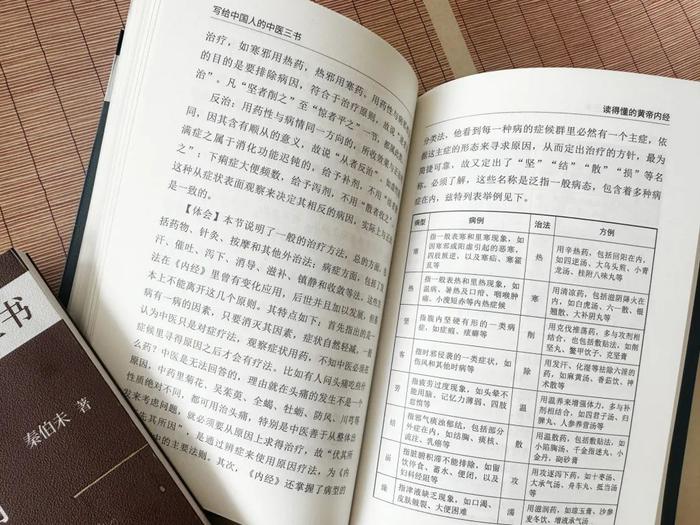 写给中国人的中医三书
治疗，如寒邪用热药，热邪用寒药。用药性与病
的目的是要排除病因，符合于治疗原则，故说
治”。凡“坚者削之”至“惊者平之”一节，都
反治：用药性与病情同一方向的，所收效果
同，因其含有顺从的意义，故说“从者反治”，
满症之属于消化功能迟钝的，予以补剂，不用
之”；下痢症大便频数，给予泻剂，不用“散者收之”
这种从症状表面观察来决定其相反的病因，实际上
【体会】本节说明了一般的治疗方法，总的方面，包
括药物、针灸、按摩和其他外治法；病症方面，包括了
汗、催吐、泻下、消导、滋补、镇静和收敛等法。这些方
法在《内经》里曾有变化应用，后世并且加以发展，但基
本上不能离开这几个原则。其特点如下：首先指出的是一
病有一病的因素，只要消灭其因素，症状自然轻减，一般
认为中医只是对症疗法，观察症状用药，不知中医必须在
症候里寻得原因之后才会有疗法。比如有人问头痛吃些什
么药？中医是无法回答的，理由就在头痛的发生不是一个
原因，中药里菊花、吴茱萸、全蝎、牡蛎、防风、川芎等
性质绝对不同，都可用治头痛，特别是中医善于从整体出
发来考虑问题，就必须要从原因上求得治疗，故“伏其所
先其所因”，是通过辨症来使用原因疗法，为《内
中的主要法则。其次，《内经》还掌握了病型的
读得懂的黄帝内经
分类法，他看到每一种病的症候群里必然有一个主症，依
据这主症的形态来寻求原因，从而定出治疗的方针，最为
简捷可靠，故又定出了“坚”“结”“散”“损”等名
称。必须了解，这些名称是泛指一般病态，包含着多种病
症在内，兹特列表举例见下。
病型 病例 治法 方例
寒 指一般表寒和里寒现象，如因寒邪或阳虚引起的恶寒、四肢厥逆，以及寒结、寒霍乱等 热 用辛热药，包括回阳在内，如四逆汤、大乌头煎、小青龙汤、桂附八味丸等
热 指一般表热和里热现象，如温病、暑热及口疳、咽喉肿痛、小溲短赤等内热症候 寒 用清凉药，包括滋阴降火在内，如白虎汤、六一散、银翘散、大补阴丸等
坚 指腹内坚硬有形的一类病症，如症瘕、癥癖等 削 用克伐推荡药，多与攻剂相结合，也包括敷贴法，如削坚丸、鳖甲饮子、克坚膏
客 指时邪侵袭的一类症状，如伤风和其他时病等 除 用发汗、化湿等祛除六淫的药，如麻黄汤、香茹饮、神术散等
劳 指疲劳过度现象，如头晕不能用脑、记忆力薄弱、四肢怠惰 温 用温养来增强体力，多与补剂相结合，如四君子汤、归脾丸、人参养营汤等
结 指邪气痰浊郁结，包括部分外症在内，如结胸、痰核、流注、乳癌等 散 用温散药，包括敷贴法，如小陷胸汤、千金指迷丸、小金丹、阳毒膏
指脏腑积滞不能排除，如留饮停食、蓄水、便闭，以及妇科经阻等 攻 用攻逐泻下药，如十枣汤、大承气汤、舟车丸、抵当汤等
燥 指津液缺乏现象，如口渴、皮肤皴裂、大便困难 濡 用滋润药，如琼玉膏、沙参麦冬饮、增液承气汤
书
秦伯未 著